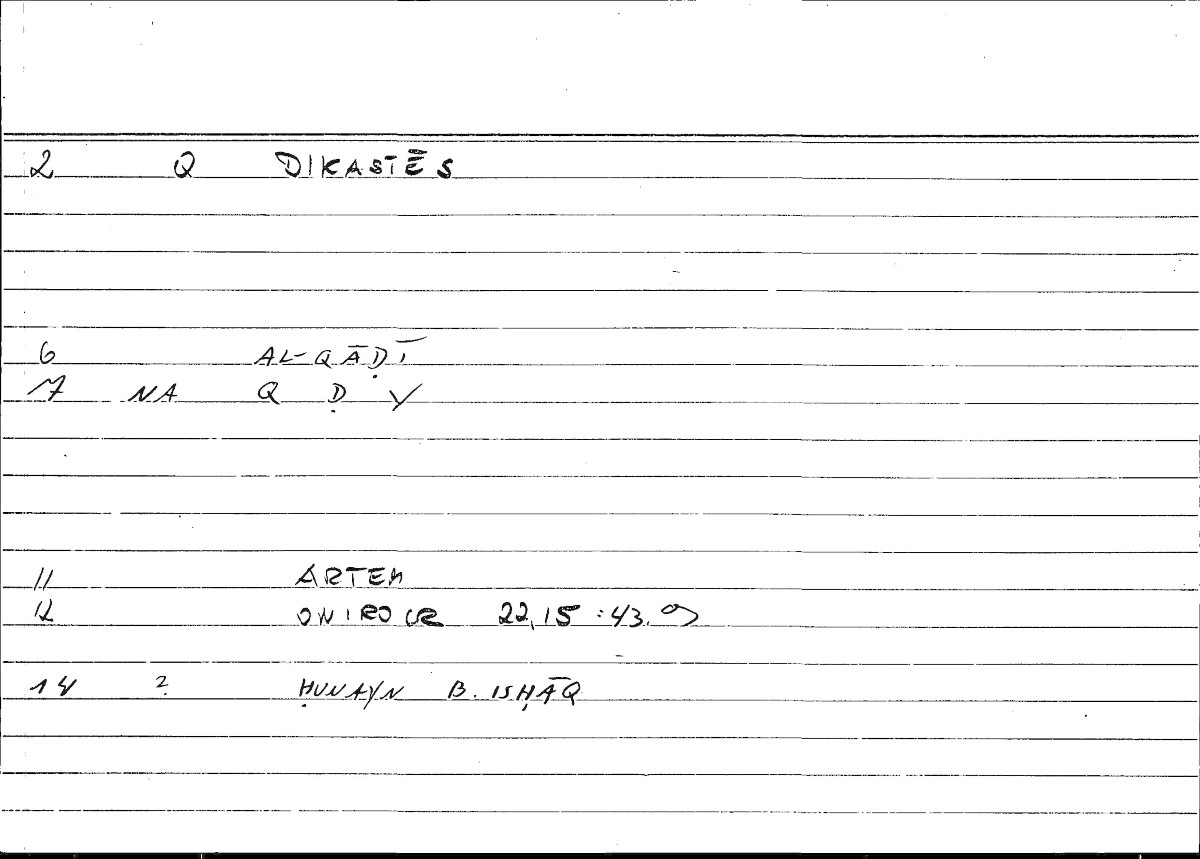 2 Q DIKASTĒS
6 AL-QĀḌĪ
7 NA Q Ḍ Y
11 ARTEM
12 ONIROCR 22,15 : 43.9
14 ? ḤUNAYN B. ISḤĀQ